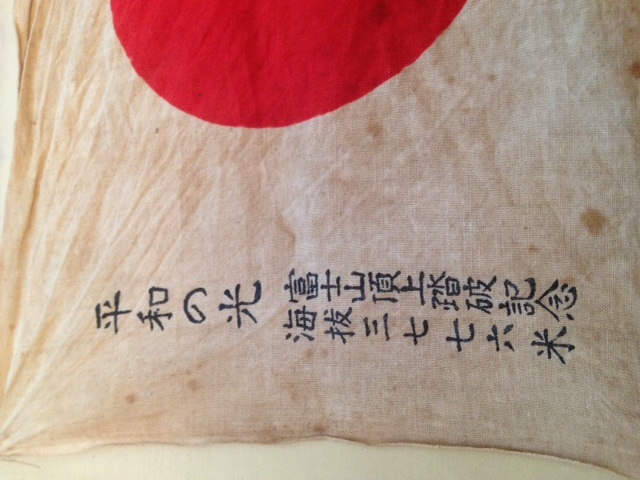 富士山頂上踏破記念
海抜三七七六米
平和の光